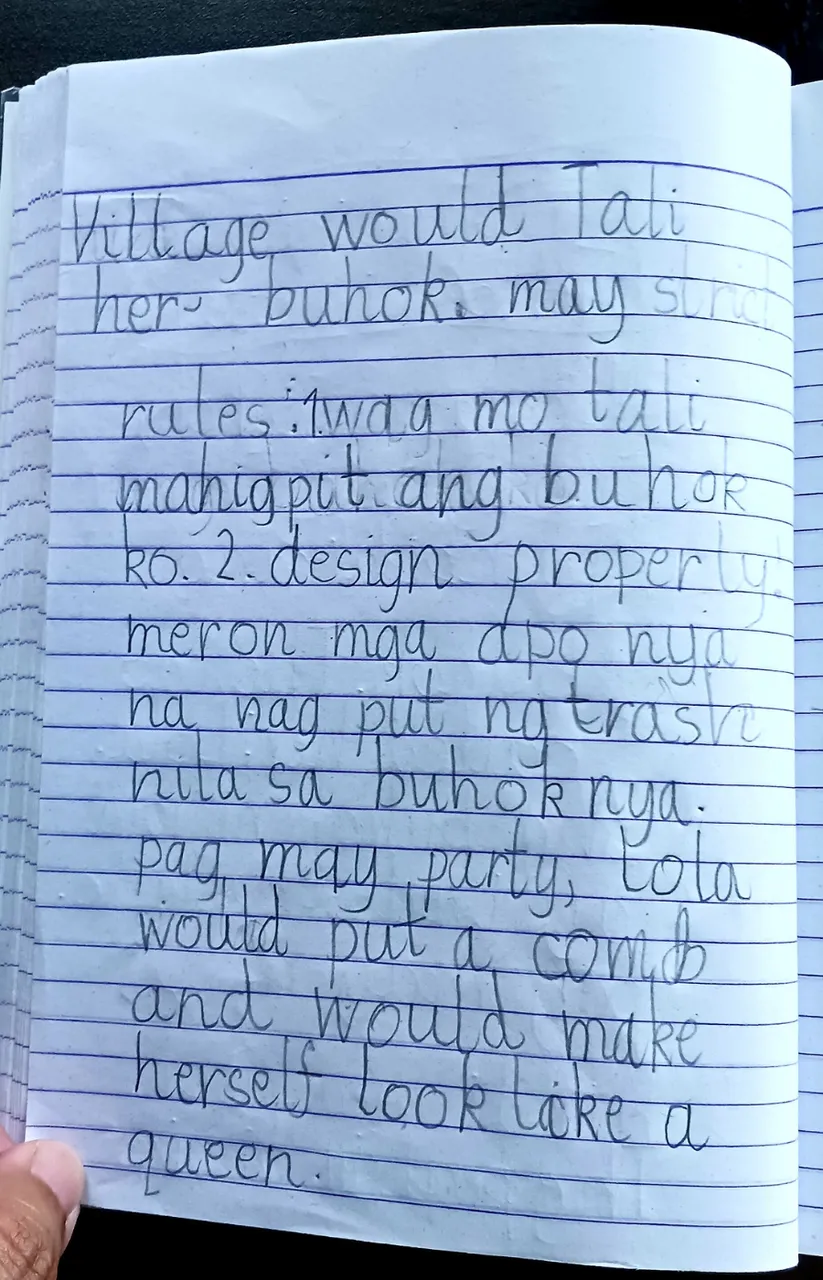 Village would Tali
her buhok. may strict
rules: 1. wag mo tali
mahigpit ang buhok
ko. 2. design property.
meron mga apo nya
na nag put ng trash
nila sa buhok nya.
pag may party, Lola
would put a comb
and would make
herself look like a
queen.